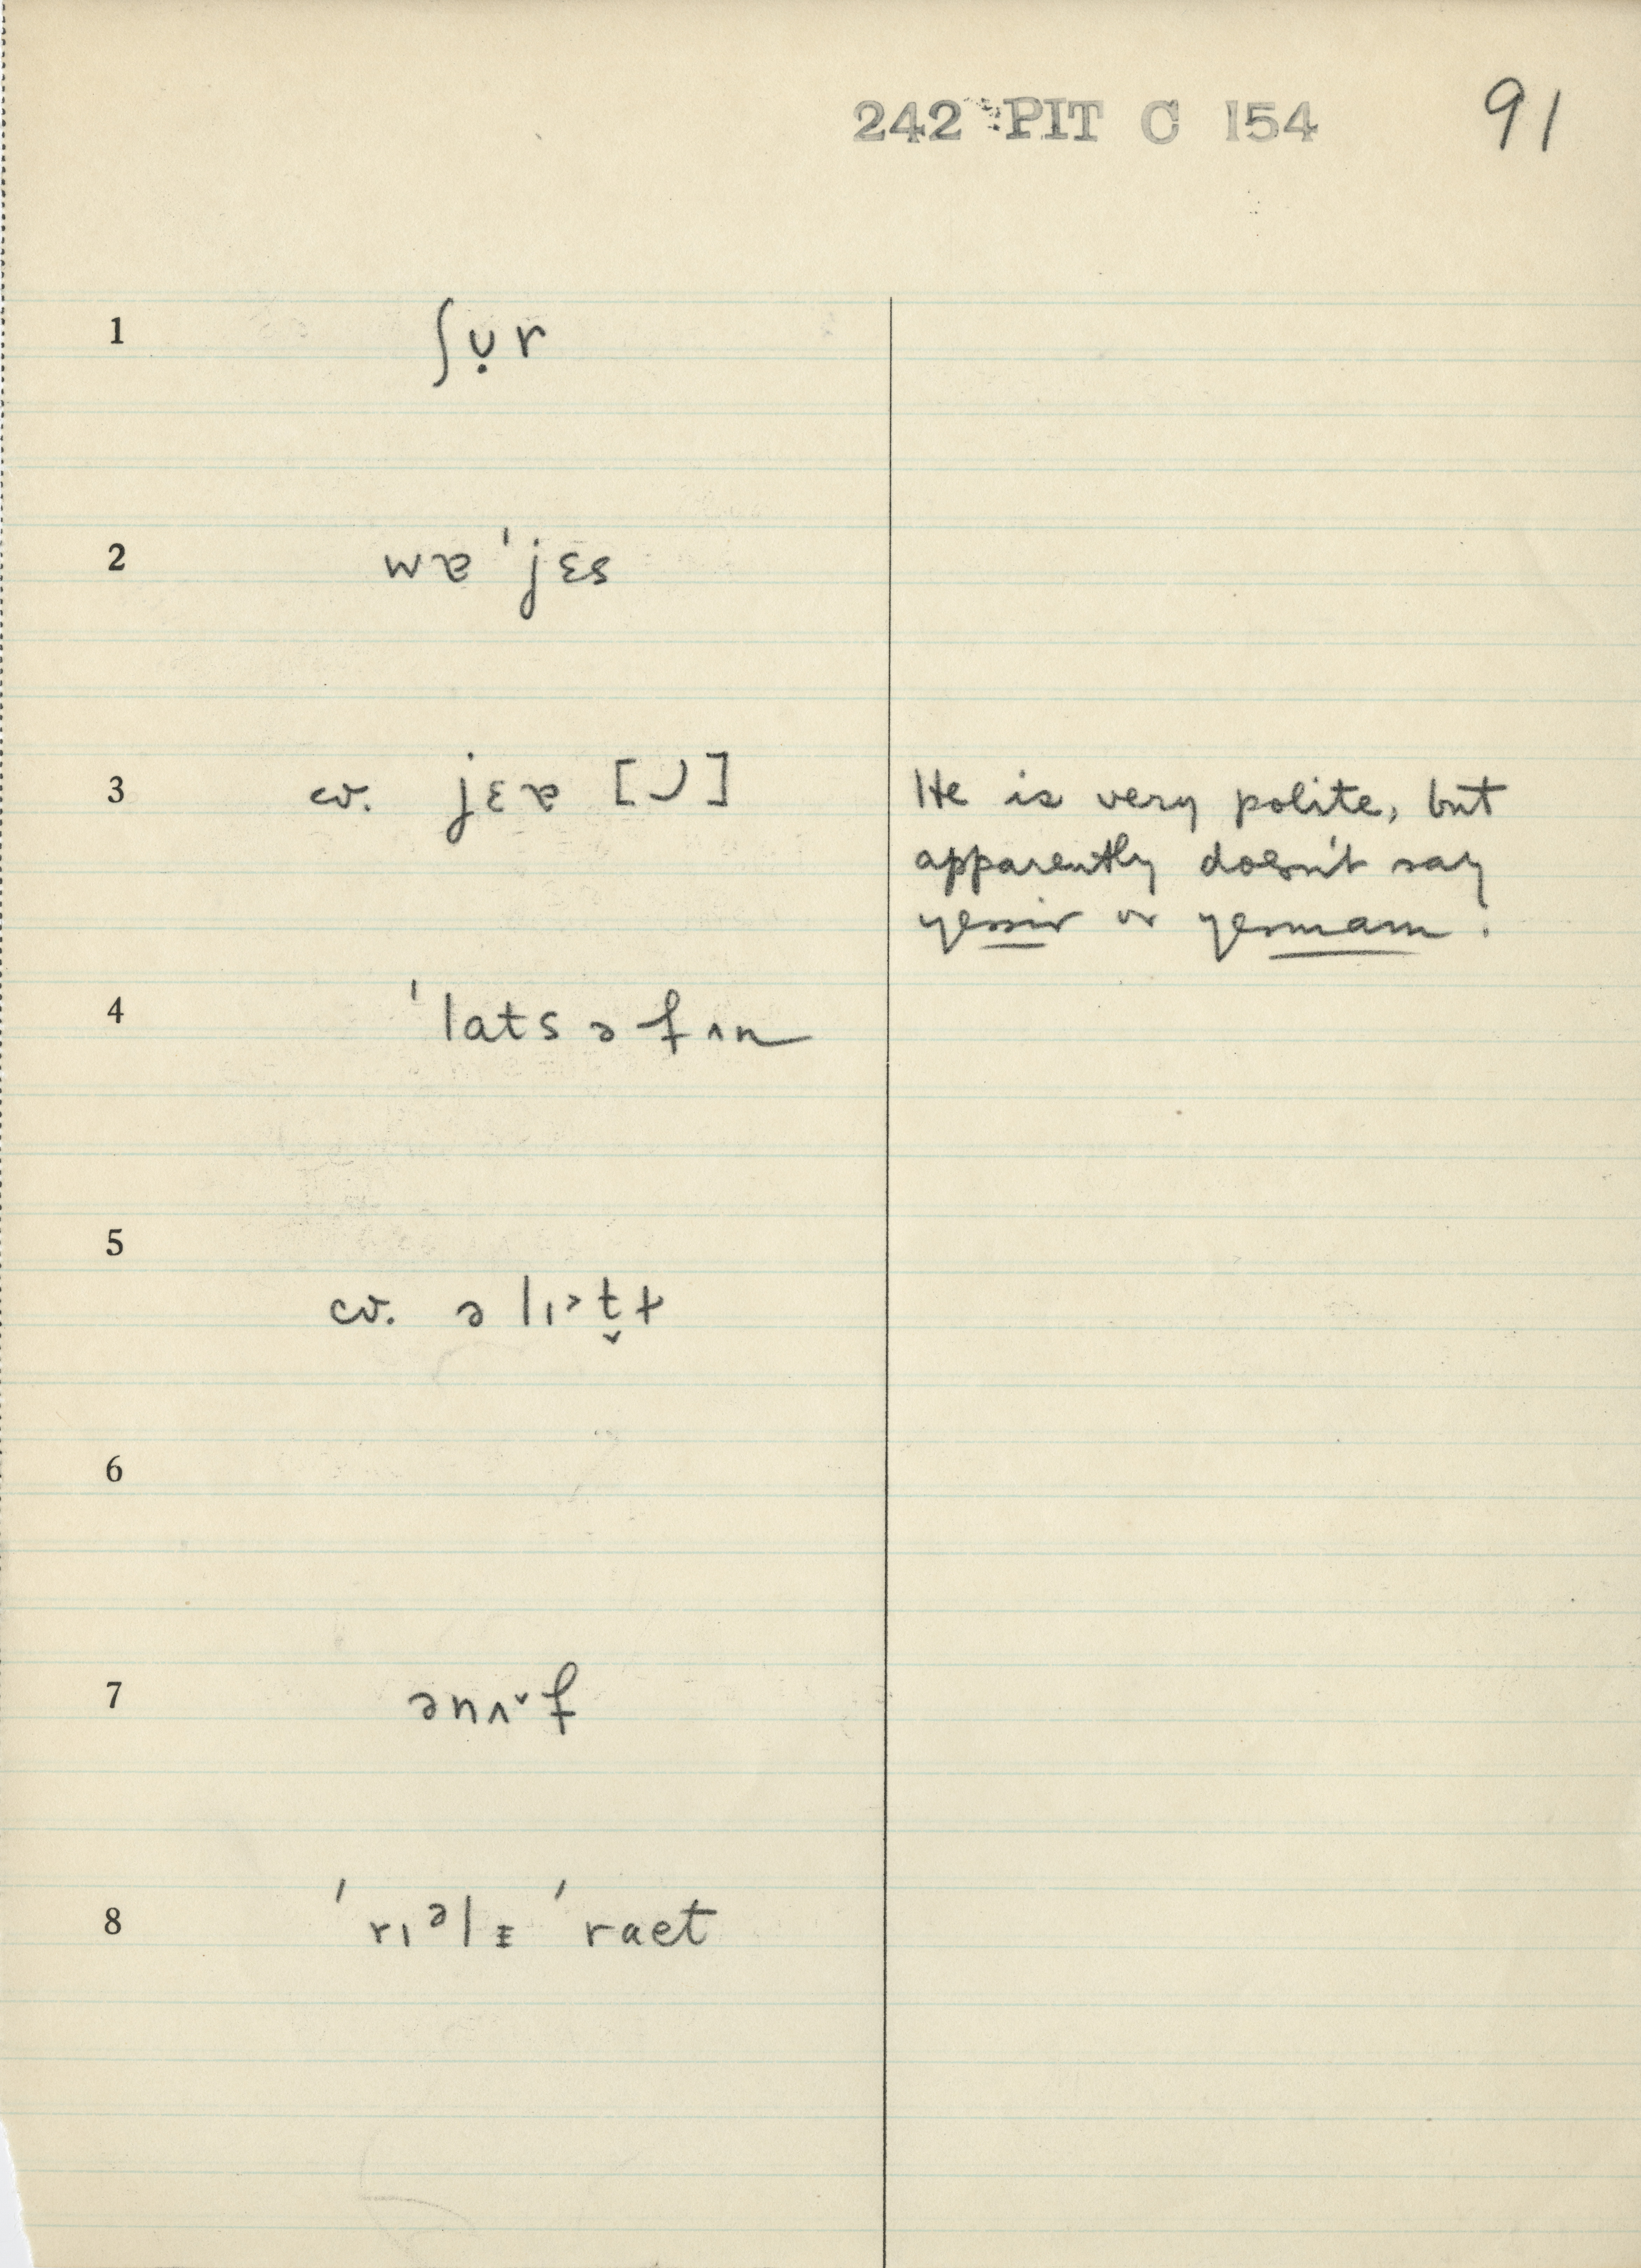 242 PIT C 154 91
1 ʃʊ̣r
2 wɐ ˈjɛs
3 cv. jɛɐ [◡] He is very polite, but
apparently doesn't say
yessir or yesmam.
4 ˈlats ə fʌn
5 cv. ə lɪ˃t̬ɫ
6
7 ənʌ˅f
8 ˈrɪᵊlɪ ˈraet